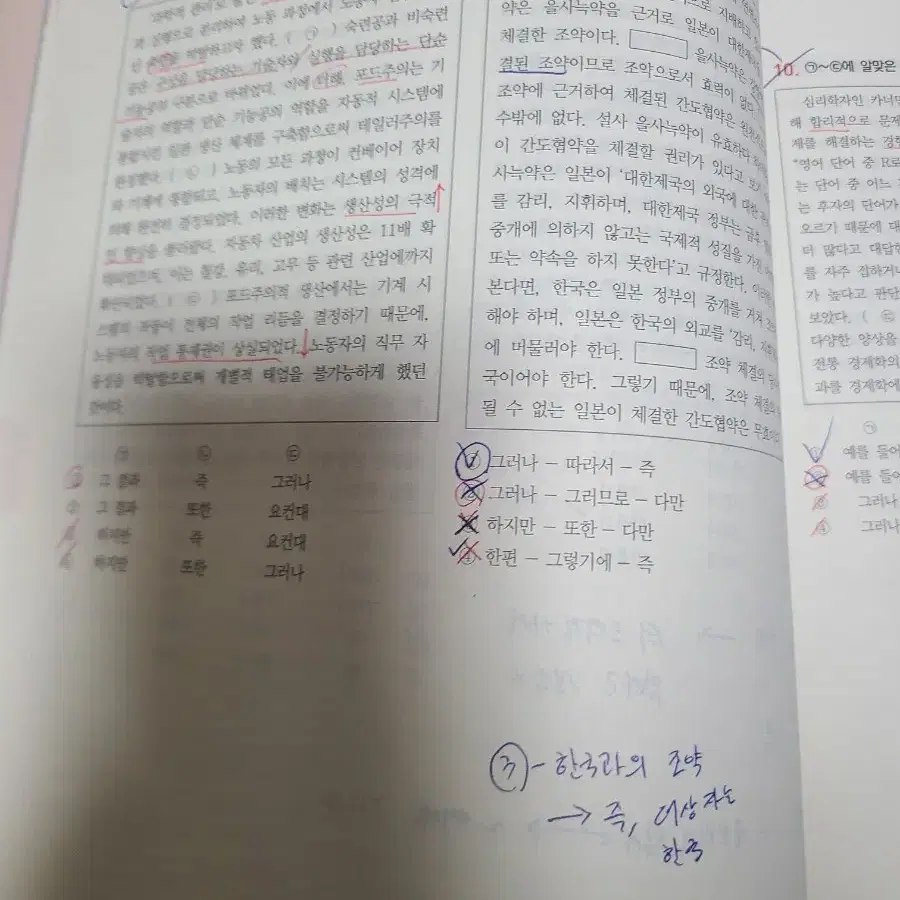 과 실행으로 분리하여 노동 과정에서 노동
인 숙련을 박탈하고자 했다. ( ㉠ ) 숙련공과 비숙련
공은 구상을 담당하는 기술자와 실행을 담당하는 단순
기능공의 구분으로 바뀌었다. 이에 더해 포드주의는 기
술자의 역할과 단순 기능공의 역할을 자동적 시스템에
통합시킨 일관 생산 체계를 구축함으로써 테일러주의를
완성했다. ( ㉡ ) 노동의 모든 과정이 컨베이어 장치
와 기계에 통합되고, 노동자의 배치는 시스템의 성격에
의해 완전히 결정되었다. 이러한 변화는 생산성의 극적
인 향상을 불러왔다. 자동차 산업의 생산성은 11배 확
대되었으며, 이는 철강, 유리, 고무 등 관련 산업에까지
확산되었다. ( ㉢ ) 포드주의적 생산에서는 기계 시
스템의 작동이 전체의 작업 리듬을 결정하기 때문에,
노동자의 작업 통제권이 상실되었다. 노동자의 직무 자
율성을 박탈함으로써 개별적 태업을 불가능하게 했던
것이다.
㉠ ㉡ ㉢
① 그 결과 즉 그러나
② 그 결과 또한 요컨대
③ 하지만 즉 요컨대
④ 하지만 또한 그러나
약은 을사늑약을 근거로 일본이 대한제
체결한 조약이다. 을사늑약은
결된 조약이므로 조약으로서 효력이 없다
조약에 근거하여 체결된 간도협약은
수밖에 없다. 설사 을사늑약이 유효하다
이 간도협약을 체결할 권리가 있다고
사늑약은 일본이 '대한제국의 외국에 대한
를 감리, 지휘하며, 대한제국 정부는 금후
중개에 의하지 않고는 국제적 성질을 가진
또는 약속을 하지 못한다'고 규정한다.
본다면, 한국은 일본 정부의 중개를 거쳐
해야 하며, 일본은 한국의 외교를 '감리,
에 머물러야 한다. 조약 체결의
국이어야 한다. 그렇기 때문에, 조약 체결의
될 수 없는 일본이 체결한 간도협약은 무효
① 그러나 - 따라서 - 즉
② 그러나 - 그러므로 - 다만
③ 하지만 - 또한 - 다만
④ 한편 - 그렇기에 - 즉
③ - 한국과의 조약
→ 즉, 대상자는
한국
10. ㉠~㉢에 알맞은
심리학자인 카너먼
해 합리적으로 문제
제를 해결하는 경
"영어 단어 중 R로
는 단어 중 어느
는 후자의 단어가
오르기 때문에 대
더 많다고 대답한
를 자주 접하거나
가 높다고 판단
보았다. ( ㉢
다양한 양상을
전통 경제학의
과를 경제학에
㉠
① 예를 들어
② 예를 들어
③ 그러나
④ 그러나